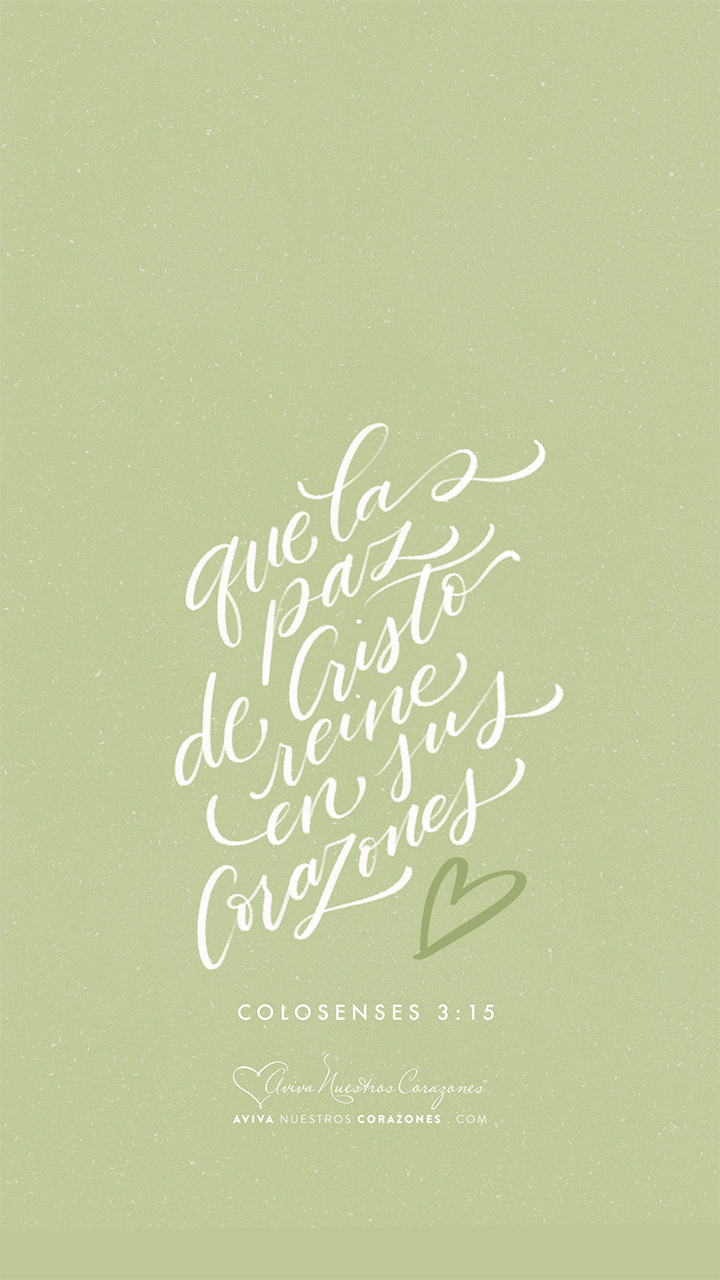 que la
paz
de Cristo
reine
en sus
Corazones
COLOSENSES 3:15
Aviva Nuestros Corazones
AVIVA NUESTROS CORAZONES . COM